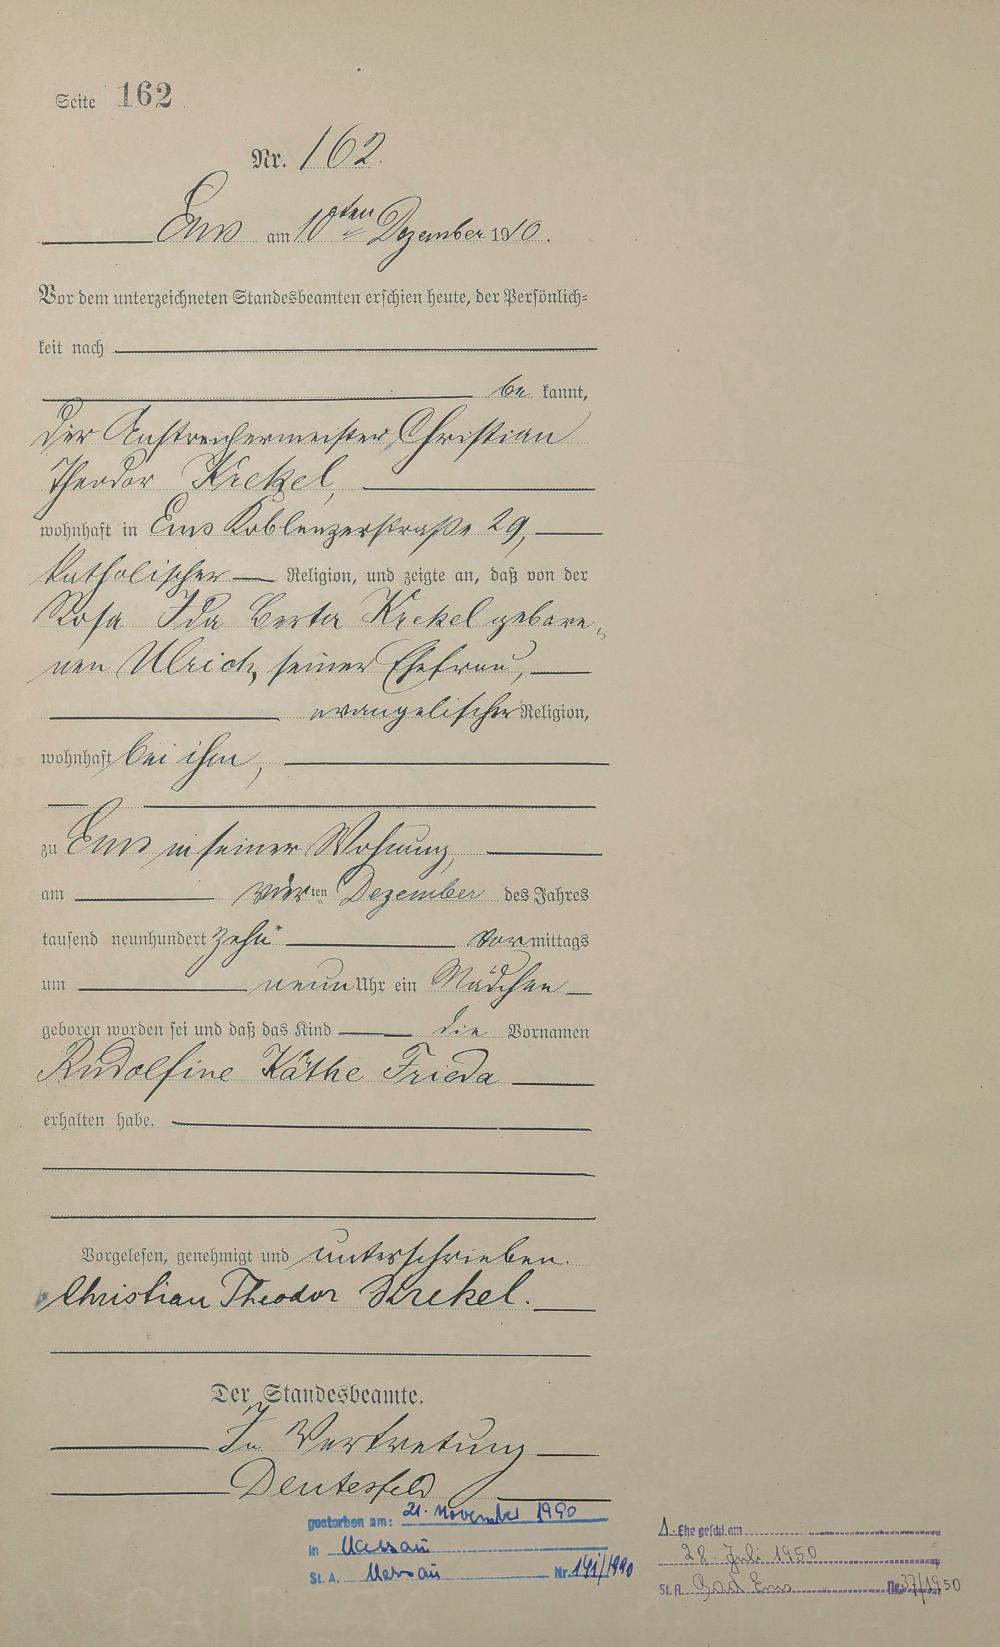 Seite 162
Nr. 162.
Ems am 10ten Dezember 1910.
Vor dem unterzeichneten Standesbeamten erschien heute, der Persönlich=
keit nach
be kannt,
der Anstreichermeister Christian
Theodor Krekel,
wohnhaft in Ems Koblenzerstraße 29,
katholischer Religion, und zeigte an, daß von der
Rosa Ida Berta Krekel gebore-
nen Ulrich, seiner Ehefrau,
evangelischer Religion,
wohnhaft bei ihm,
zu Ems in seiner Wohnung,
am vierten Dezember des Jahres
tausend neunhundert zehn Vormittags
um neun Uhr ein Mädchen
geboren worden sei und daß das Kind die Vornamen
Rudolfine Käthe Frieda
erhalten habe.
Vorgelesen, genehmigt und unterschrieben.
Christian Theodor Krekel.
Der Standesbeamte.
In Vertretung
gestorben am: 21. November 1990
in Nassau
St. A. Nassau Nr. 141/1990
1. Ehe geschl. am
28. Juli 1950
St. A. Bad Ems Nr. 37/1950